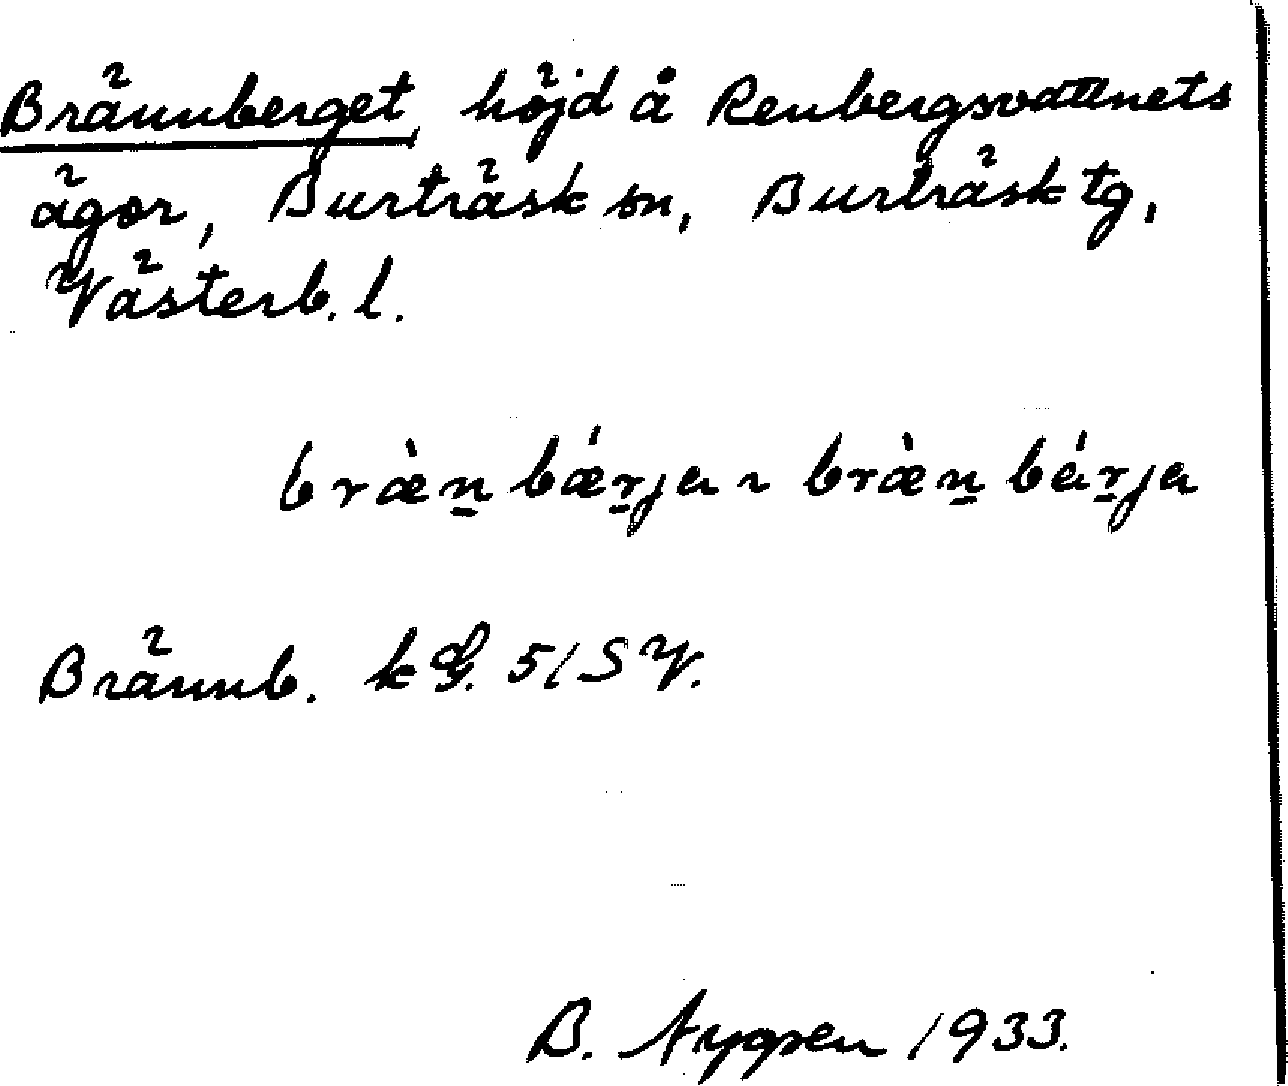 Brännberget, höjd å Renbergsvattnets
ägor, Burträsk sn, Burträsk tg,
Västerb. l.
bræ̀n̲ bǽr̲ja ~ bræ̀n̲ bér̲ja
Brännb. k G. 51 SV.
B. Nygren 1933.